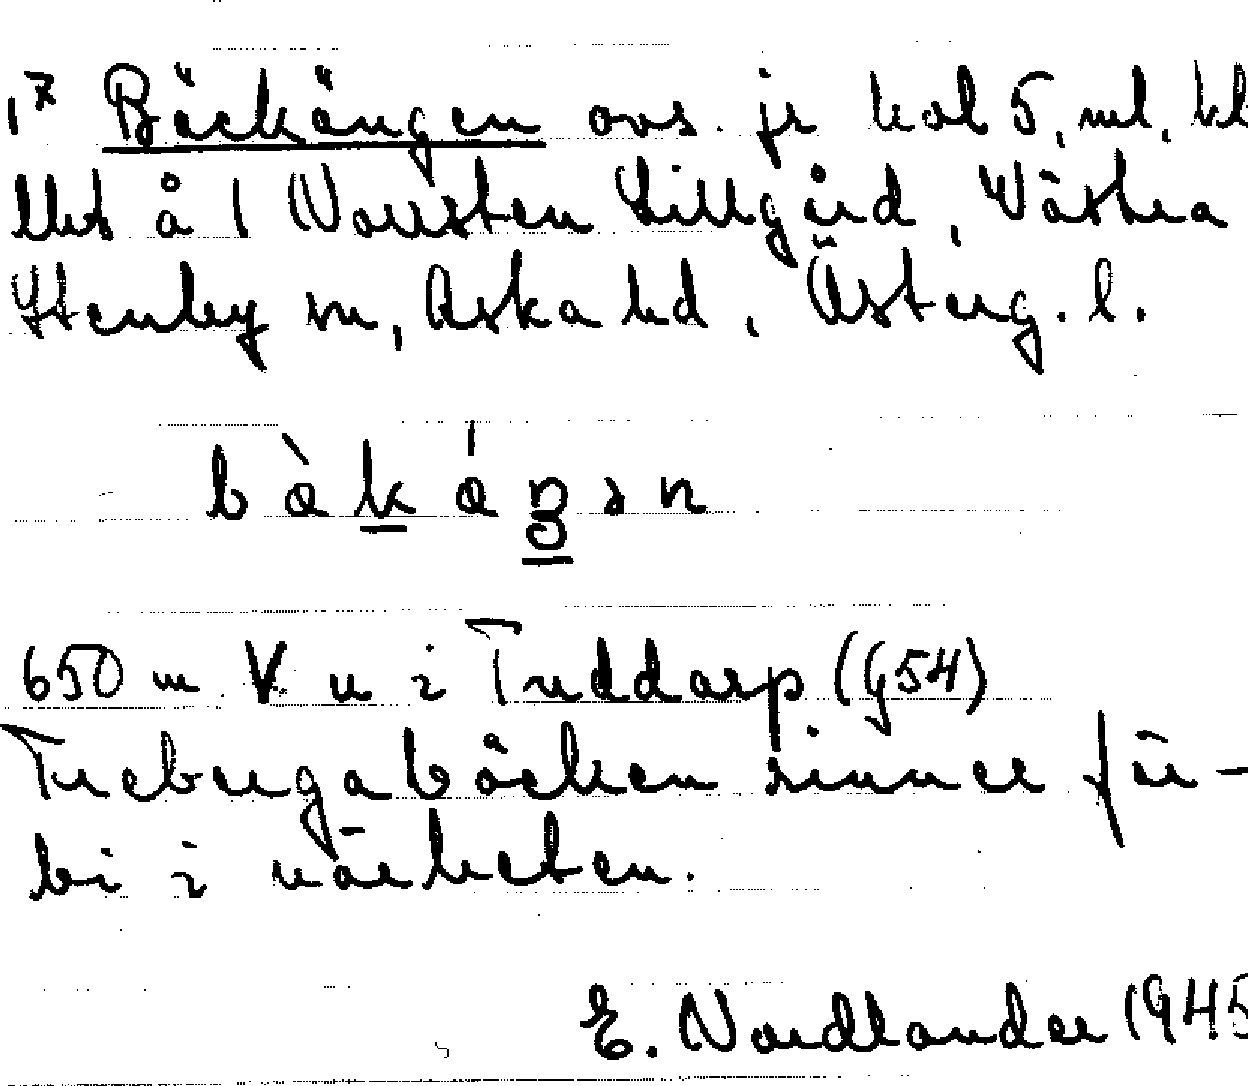 17 Bäckängen avs. jr kol 5, ml, kl
llet å 1 Norrsten Lillgård, Västra
Stenby sn, Aska hd, Österg. l.
bàkáŋən
650 m V u i Tuddarp (G54)
Trebergabäcken rinner för-
bi i närheten.
E. Nordlander 1945